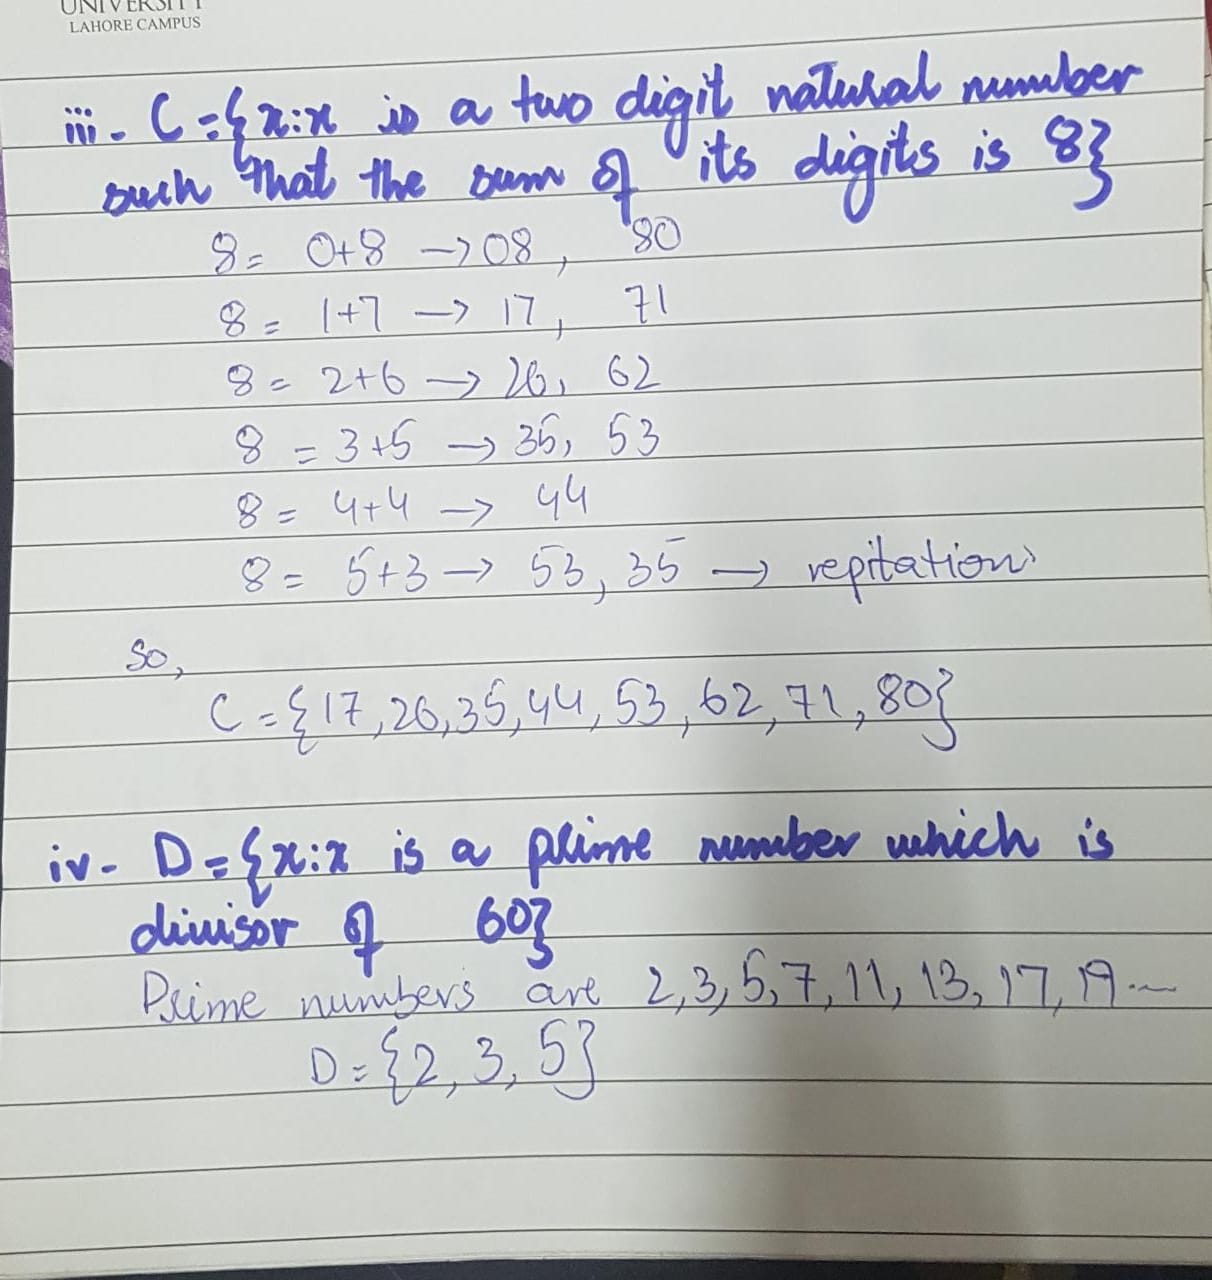 UNIVERSITY
LAHORE CAMPUS
iii- C={x:x is a two digit natural number
such that the sum of its digits is 8}
8= 0+8 → 08, 80
8= 1+7 → 17, 71
8= 2+6 → 26, 62
8 = 3+5 → 35, 53
8= 4+4 → 44
8= 5+3 → 53, 35 → repitation
So,
C={17,26,35,44,53,62,71,80}
iv- D={x:x is a prime number which is
divisor of 60}
Prime numbers are 2,3,5,7,11,13,17,19...
D={2,3,5}